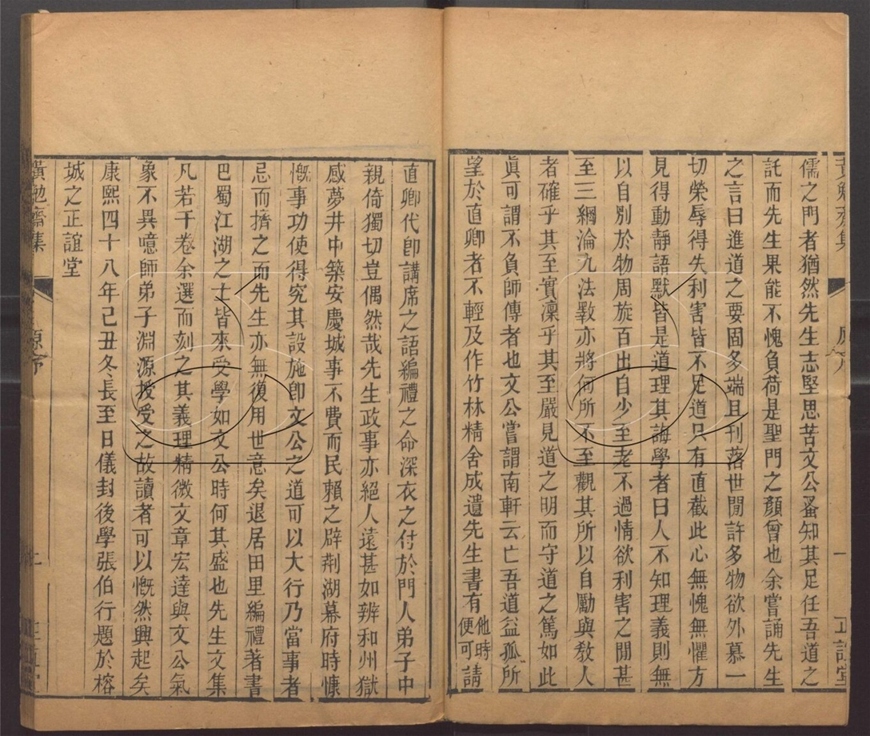 黃勉齋集
原序
一
正誼堂
儒之門者猶然先生志堅思苦文公蚤知其足任吾道之
託而先生果能不愧負荷是聖門之顏曾也余嘗誦先生
之言曰進道之要固多端且刊落世閒許多物欲外慕一
切榮辱得失利害皆不足道只有直截此心無愧無懼方
見得動靜語默皆是道理其誨學者曰人不知理義則無
以自別於物周旋百出自少至老不過情欲利害之閒甚
至三綱淪九法斁亦將何所不至觀其所以自勵與敎人
者確乎其至實凜乎其至嚴見道之明而守道之篤如此
眞可謂不負師傳者也文公嘗謂南軒云亡吾道益孤所
望於直卿者不輕及作竹林精舍成遺先生書有他時便可請
直卿代卽講席之語編禮之命深衣之付於門人弟子中
親倚獨切豈偶然哉先生政事亦絕人遠甚如辨和州獄
感夢井中築安慶城事不費而民賴之辟荊湖幕府時慷
慨事功使得究其設施卽文公之道可以大行乃當事者
忌而擠之而先生亦無復用世意矣退居田里編禮著書
巴蜀江湖之士皆來受學如文公時何其盛也先生文集
凡若干卷余選而刻之其義理精微文章宏達與文公氣
象不異噫師弟子淵源授受之故讀者可以慨然興起矣
康熙四十八年己丑冬長至日儀封後學張伯行題於榕
城之正誼堂
黃勉齋集
原序